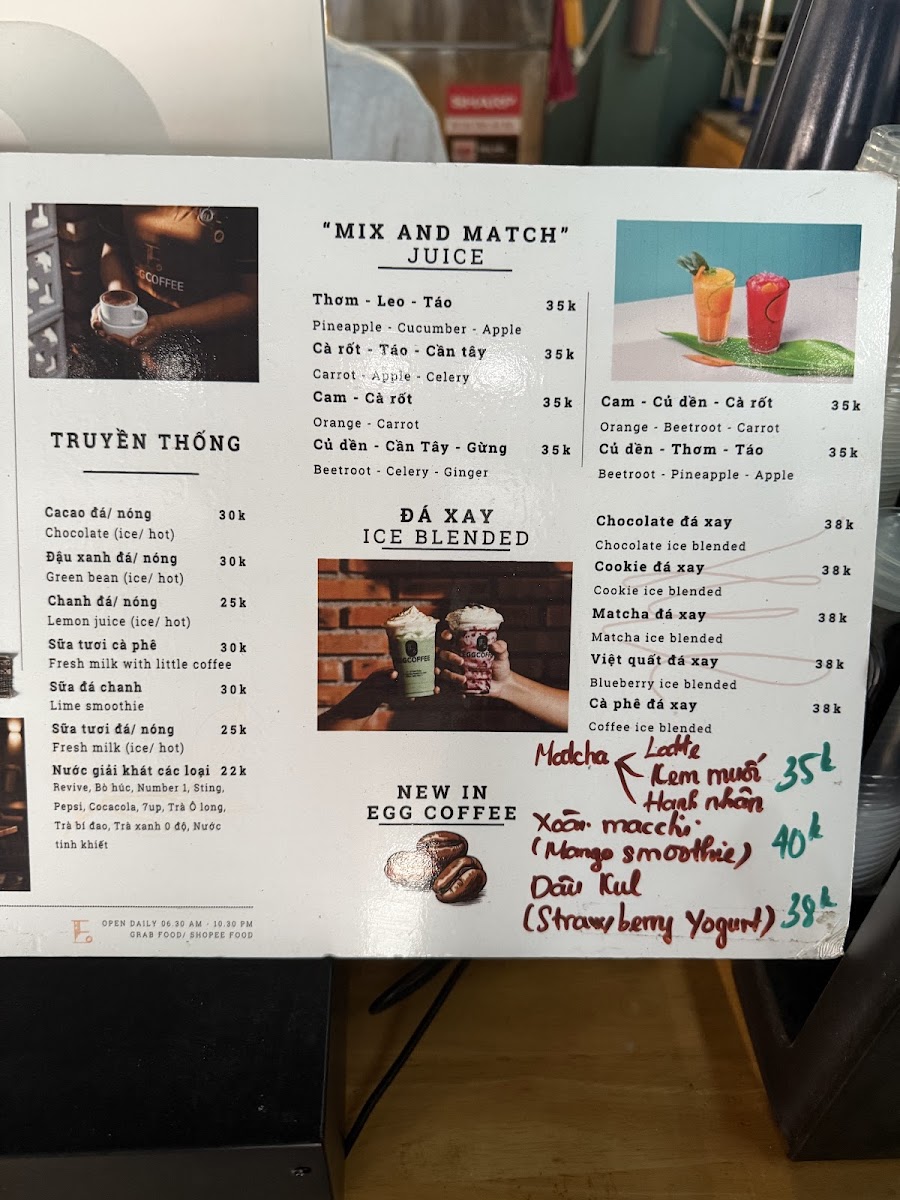 SHARP
EGGCOFFEE
TRUYỀN THỐNG
Cacao đá/ nóng 30k
Chocolate (ice/ hot)
Đậu xanh đá/ nóng 30k
Green bean (ice/ hot)
Chanh đá/ nóng 25k
Lemon juice (ice/ hot)
Sữa tươi cà phê 30k
Fresh milk with little coffee
Sữa đá chanh 30k
Lime smoothie
Sữa tươi đá/ nóng 25k
Fresh milk (ice/ hot)
Nước giải khát các loại 22k
Revive, Bò húc, Number 1, Sting,
Pepsi, Cocacola, 7up, Trà Ô long,
Trà bí đao, Trà xanh 0 độ, Nước
tinh khiết
OPEN DAILY 06.30 AM - 10.30 PM
GRAB FOOD/ SHOPEE FOOD
"MIX AND MATCH"
JUICE
Thơm - Leo - Táo 35k
Pineapple - Cucumber - Apple
Cà rốt - Táo - Cần tây 35k
Carrot - Apple - Celery
Cam - Cà rốt 35k
Orange - Carrot
Củ dền - Cần Tây - Gừng 35k
Beetroot - Celery - Ginger
Cam - Củ dền - Cà rốt 35k
Orange - Beetroot - Carrot
Củ dền - Thơm - Táo 35k
Beetroot - Pineapple - Apple
ĐÁ XAY
ICE BLENDED
EGGCOFFEE
EGGCOFFEE
Chocolate đá xay 38k
Chocolate ice blended
Cookie đá xay 38k
Cookie ice blended
Matcha đá xay 38k
Matcha ice blended
Việt quất đá xay 38k
Blueberry ice blended
Cà phê đá xay 38k
Coffee ice blended
NEW IN
EGG COFFEE
Matcha Latte
Kem muối 35k
Hạnh nhân
Xoài macchi
(Mango smoothie) 40k
Dâu Kul
(Strawberry Yogurt) 38k